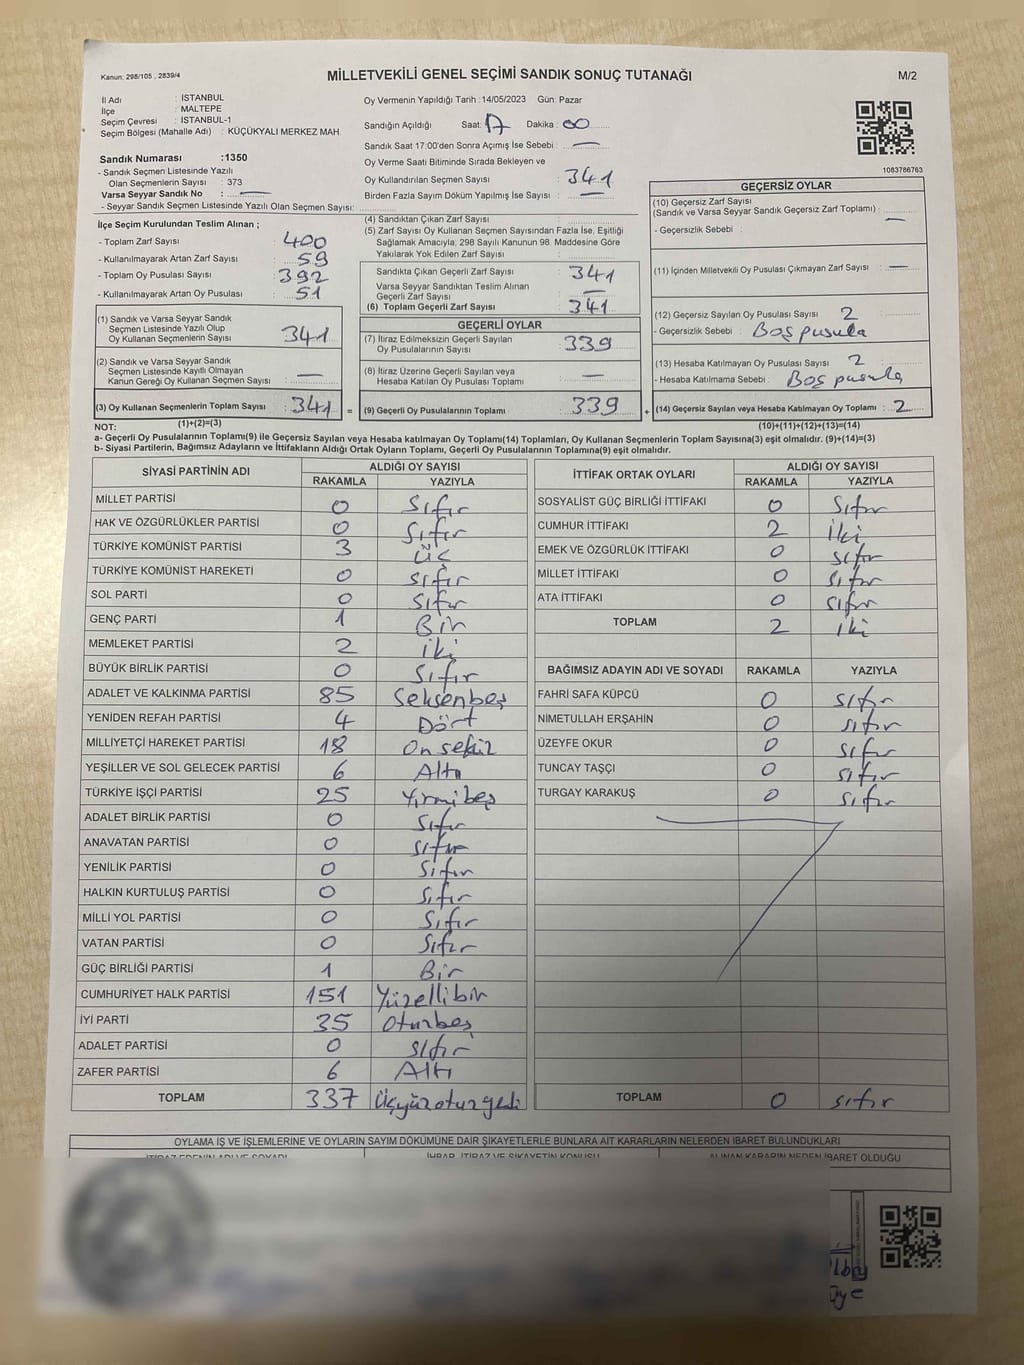 Kanun: 298/105 , 2839/4
MİLLETVEKİLİ GENEL SEÇİMİ SANDIK SONUÇ TUTANAĞI
M/2
İl Adı : İSTANBUL
İlçe : MALTEPE
Seçim Çevresi : İSTANBUL-1
Seçim Bölgesi (Mahalle Adı) : KÜÇÜKYALI MERKEZ MAH.
Sandık Numarası :1350
- Sandık Seçmen Listesinde Yazılı
Olan Seçmenlerin Sayısı : 373
Varsa Seyyar Sandık No : —
- Seyyar Sandık Seçmen Listesinde Yazılı Olan Seçmen Sayısı:
Oy Vermenin Yapıldığı Tarih :14/05/2023 Gün: Pazar
Sandığın Açıldığı Saat: 17 Dakika : 00
Sandık Saat 17:00'den Sonra Açılmış İse Sebebi : —
Oy Verme Saati Bitiminde Sırada Bekleyen ve
Oy Kullandırılan Seçmen Sayısı : 341
Birden Fazla Sayım Döküm Yapılmış İse Sayısı : —
1083786763
İlçe Seçim Kurulundan Teslim Alınan ;
- Toplam Zarf Sayısı : 400
- Kullanılmayarak Artan Zarf Sayısı : 59
- Toplam Oy Pusulası Sayısı : 392
- Kullanılmayarak Artan Oy Pusulası : 51
(1) Sandık ve Varsa Seyyar Sandık
Seçmen Listesinde Yazılı Olup
Oy Kullanan Seçmenlerin Sayısı : 341
(2) Sandık ve Varsa Seyyar Sandık
Seçmen Listesinde Kayıtlı Olmayan
Kanun Gereği Oy Kullanan Seçmen Sayısı : —
(3) Oy Kullanan Seçmenlerin Toplam Sayısı : 341 =
(1)+(2)=(3)
(4) Sandıktan Çıkan Zarf Sayısı :
(5) Zarf Sayısı Oy Kullanan Seçmen Sayısından Fazla İse, Eşitliği
Sağlamak Amacıyla; 298 Sayılı Kanunun 98. Maddesine Göre
Yakılarak Yok Edilen Zarf Sayısı :
Sandıkta Çıkan Geçerli Zarf Sayısı : 341
Varsa Seyyar Sandıktan Teslim Alınan
Geçerli Zarf Sayısı : —
(6) Toplam Geçerli Zarf Sayısı : 341
GEÇERLİ OYLAR
(7) İtiraz Edilmeksizin Geçerli Sayılan
Oy Pusulalarının Sayısı : 339
(8) İtiraz Üzerine Geçerli Sayılan veya
Hesaba Katılan Oy Pusulası Toplamı : —
(9) Geçerli Oy Pusulalarının Toplamı : 339 +
GEÇERSİZ OYLAR
(10) Geçersiz Zarf Sayısı
(Sandık ve Varsa Seyyar Sandık Geçersiz Zarf Toplamı) : —
- Geçersizlik Sebebi :
(11) İçinden Milletvekili Oy Pusulası Çıkmayan Zarf Sayısı : —
(12) Geçersiz Sayılan Oy Pusulası Sayısı : 2
- Geçersizlik Sebebi : Boş pusula
(13) Hesaba Katılmayan Oy Pusulası Sayısı : 2
- Hesaba Katılmama Sebebi : Boş pusula
(14) Geçersiz Sayılan veya Hesaba Katılmayan Oy Toplamı : 2
(10)+(11)+(12)+(13)=(14)
NOT:
a- Geçerli Oy Pusulalarının Toplamı(9) ile Geçersiz Sayılan veya Hesaba katılmayan Oy Toplamı(14) Toplamları, Oy Kullanan Seçmenlerin Toplam Sayısına(3) eşit olmalıdır. (9)+(14)=(3)
b- Siyasi Partilerin, Bağımsız Adayların ve İttifakların Aldığı Ortak Oyların Toplamı, Geçerli Oy Pusulalarının Toplamına(9) eşit olmalıdır.
SİYASİ PARTİNİN ADI ALDIĞI OY SAYISI
RAKAMLA YAZIYLA
MİLLET PARTİSİ 0 Sıfır
HAK VE ÖZGÜRLÜKLER PARTİSİ 0 Sıfır
TÜRKİYE KOMÜNİST PARTİSİ 3 Üç
TÜRKİYE KOMÜNİST HAREKETİ 0 sıfır
SOL PARTİ 0 Sıfır
GENÇ PARTİ 1 Bir
MEMLEKET PARTİSİ 2 iki
BÜYÜK BİRLİK PARTİSİ 0 Sıfır
ADALET VE KALKINMA PARTİSİ 85 Seksenbeş
YENİDEN REFAH PARTİSİ 4 Dört
MİLLİYETÇİ HAREKET PARTİSİ 18 On sekiz
YEŞİLLER VE SOL GELECEK PARTİSİ 6 Altı
TÜRKİYE İŞÇİ PARTİSİ 25 Yirmibeş
ADALET BİRLİK PARTİSİ 0 Sıfır
ANAVATAN PARTİSİ 0 Sıfır
YENİLİK PARTİSİ 0 Sıfır
HALKIN KURTULUŞ PARTİSİ 0 Sıfır
MİLLİ YOL PARTİSİ 0 Sıfır
VATAN PARTİSİ 0 Sıfır
GÜÇ BİRLİĞİ PARTİSİ 1 Bir
CUMHURİYET HALK PARTİSİ 151 Yüzellibir
İYİ PARTİ 35 Otuzbeş
ADALET PARTİSİ 0 sıfır
ZAFER PARTİSİ 6 Altı
TOPLAM 337 Üçyüzotuzyedi
İTTİFAK ORTAK OYLARI ALDIĞI OY SAYISI
RAKAMLA YAZIYLA
SOSYALİST GÜÇ BİRLİĞİ İTTİFAKI 0 Sıfır
CUMHUR İTTİFAKI 2 İki
EMEK VE ÖZGÜRLÜK İTTİFAKI 0 sıfır
MİLLET İTTİFAKI 0 Sıfır
ATA İTTİFAKI 0 sıfır
TOPLAM 2 iki
BAĞIMSIZ ADAYIN ADI VE SOYADI RAKAMLA YAZIYLA
FAHRİ SAFA KÜPCÜ 0 sıfır
NİMETULLAH ERŞAHİN 0 sıfır
ÜZEYFE OKUR 0 sıfır
TUNCAY TAŞÇI 0 sıfır
TURGAY KARAKUŞ 0 sıfır
TOPLAM 0 sıfır
OYLAMA İŞ VE İŞLEMLERİNE VE OYLARIN SAYIM DÖKÜMÜNE DAİR ŞİKAYETLERLE BUNLARA AİT KARARLARIN NELERDEN İBARET BULUNDUKLARI
İTİRAZ EDENİN ADI VE SOYADI İHBAR, İTİRAZ VE ŞİKAYETİN KONUSU ALINAN KARARIN NEDEN İBARET OLDUĞU
Üye